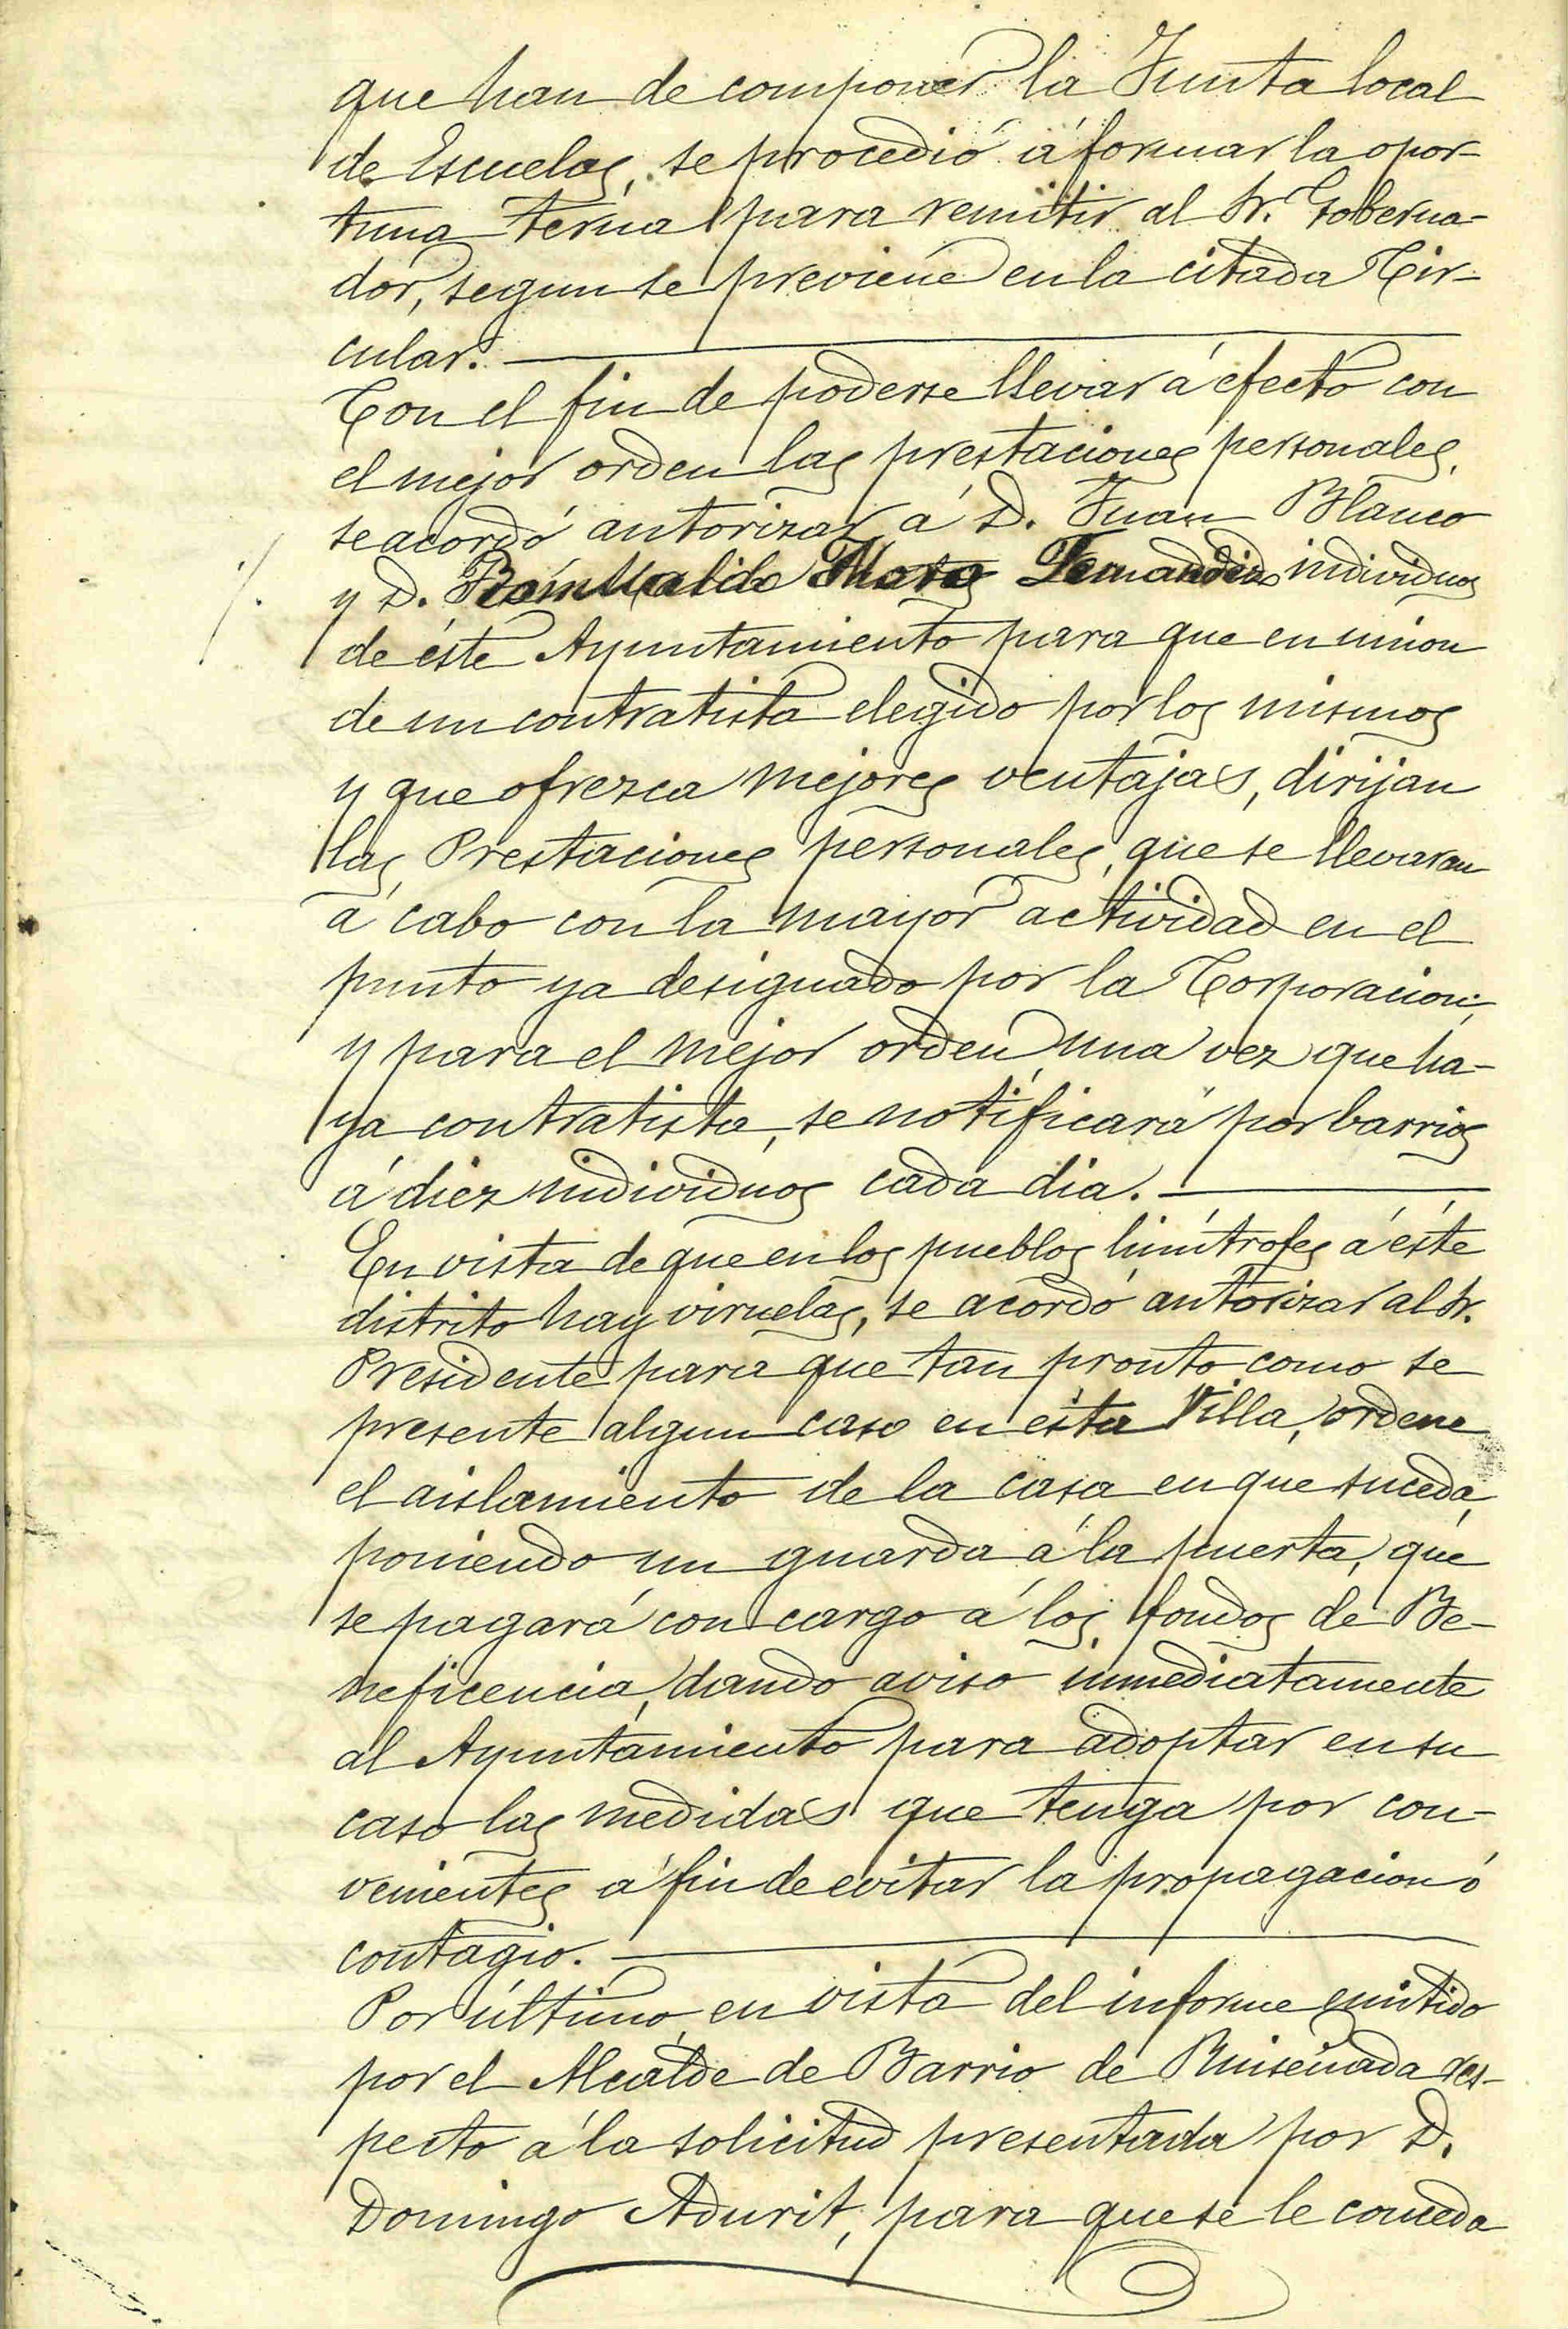 que han de componer la Junta local
de Escuelas, se procedió á formar la opor-
tuna terna para remitir al Sr. Goberna-
dor, segun se previene en la citada Cir-
cular.
Con el fin de poderse llevar á efecto con
el mejor orden las prestaciones personales,
se acordó autorizar á D. Juan Blanco
y D. Romualdo Moro Fernandez individuos
de éste Ayuntamiento para que en union
de un contratista elegido por los mismos
y que ofrezca mejores ventajas, dirijan
las Prestaciones personales, que se llevaran
á cabo con la mayor actividad en el
punto ya designado por la Corporacion;
y para el mejor orden, una vez que ha-
ya contratista, se notificará por barrios
á diez individuos cada dia.
En vista de que en los pueblos limítrofes á éste
distrito hay viruelas, se acordó autorizar al Sr.
Presidente para que tan pronto como se
presente algun caso en esta Villa, ordene
el aislamiento de la casa en que suceda,
poniendo un guarda á la puerta, que
se pagará con cargo á los fondos de Be-
neficencia, dando aviso inmediatamente
al Ayuntamiento para adoptar en su
caso las medidas que tenga por con-
venientes á fin de evitar la propagacion ó
contagio.
Por último, en vista del informe emitido
por el Alcalde de Barrio de Ruiseñada res-
pecto á la solicitud presentada por D.
Domingo Adurit, para que se le conceda